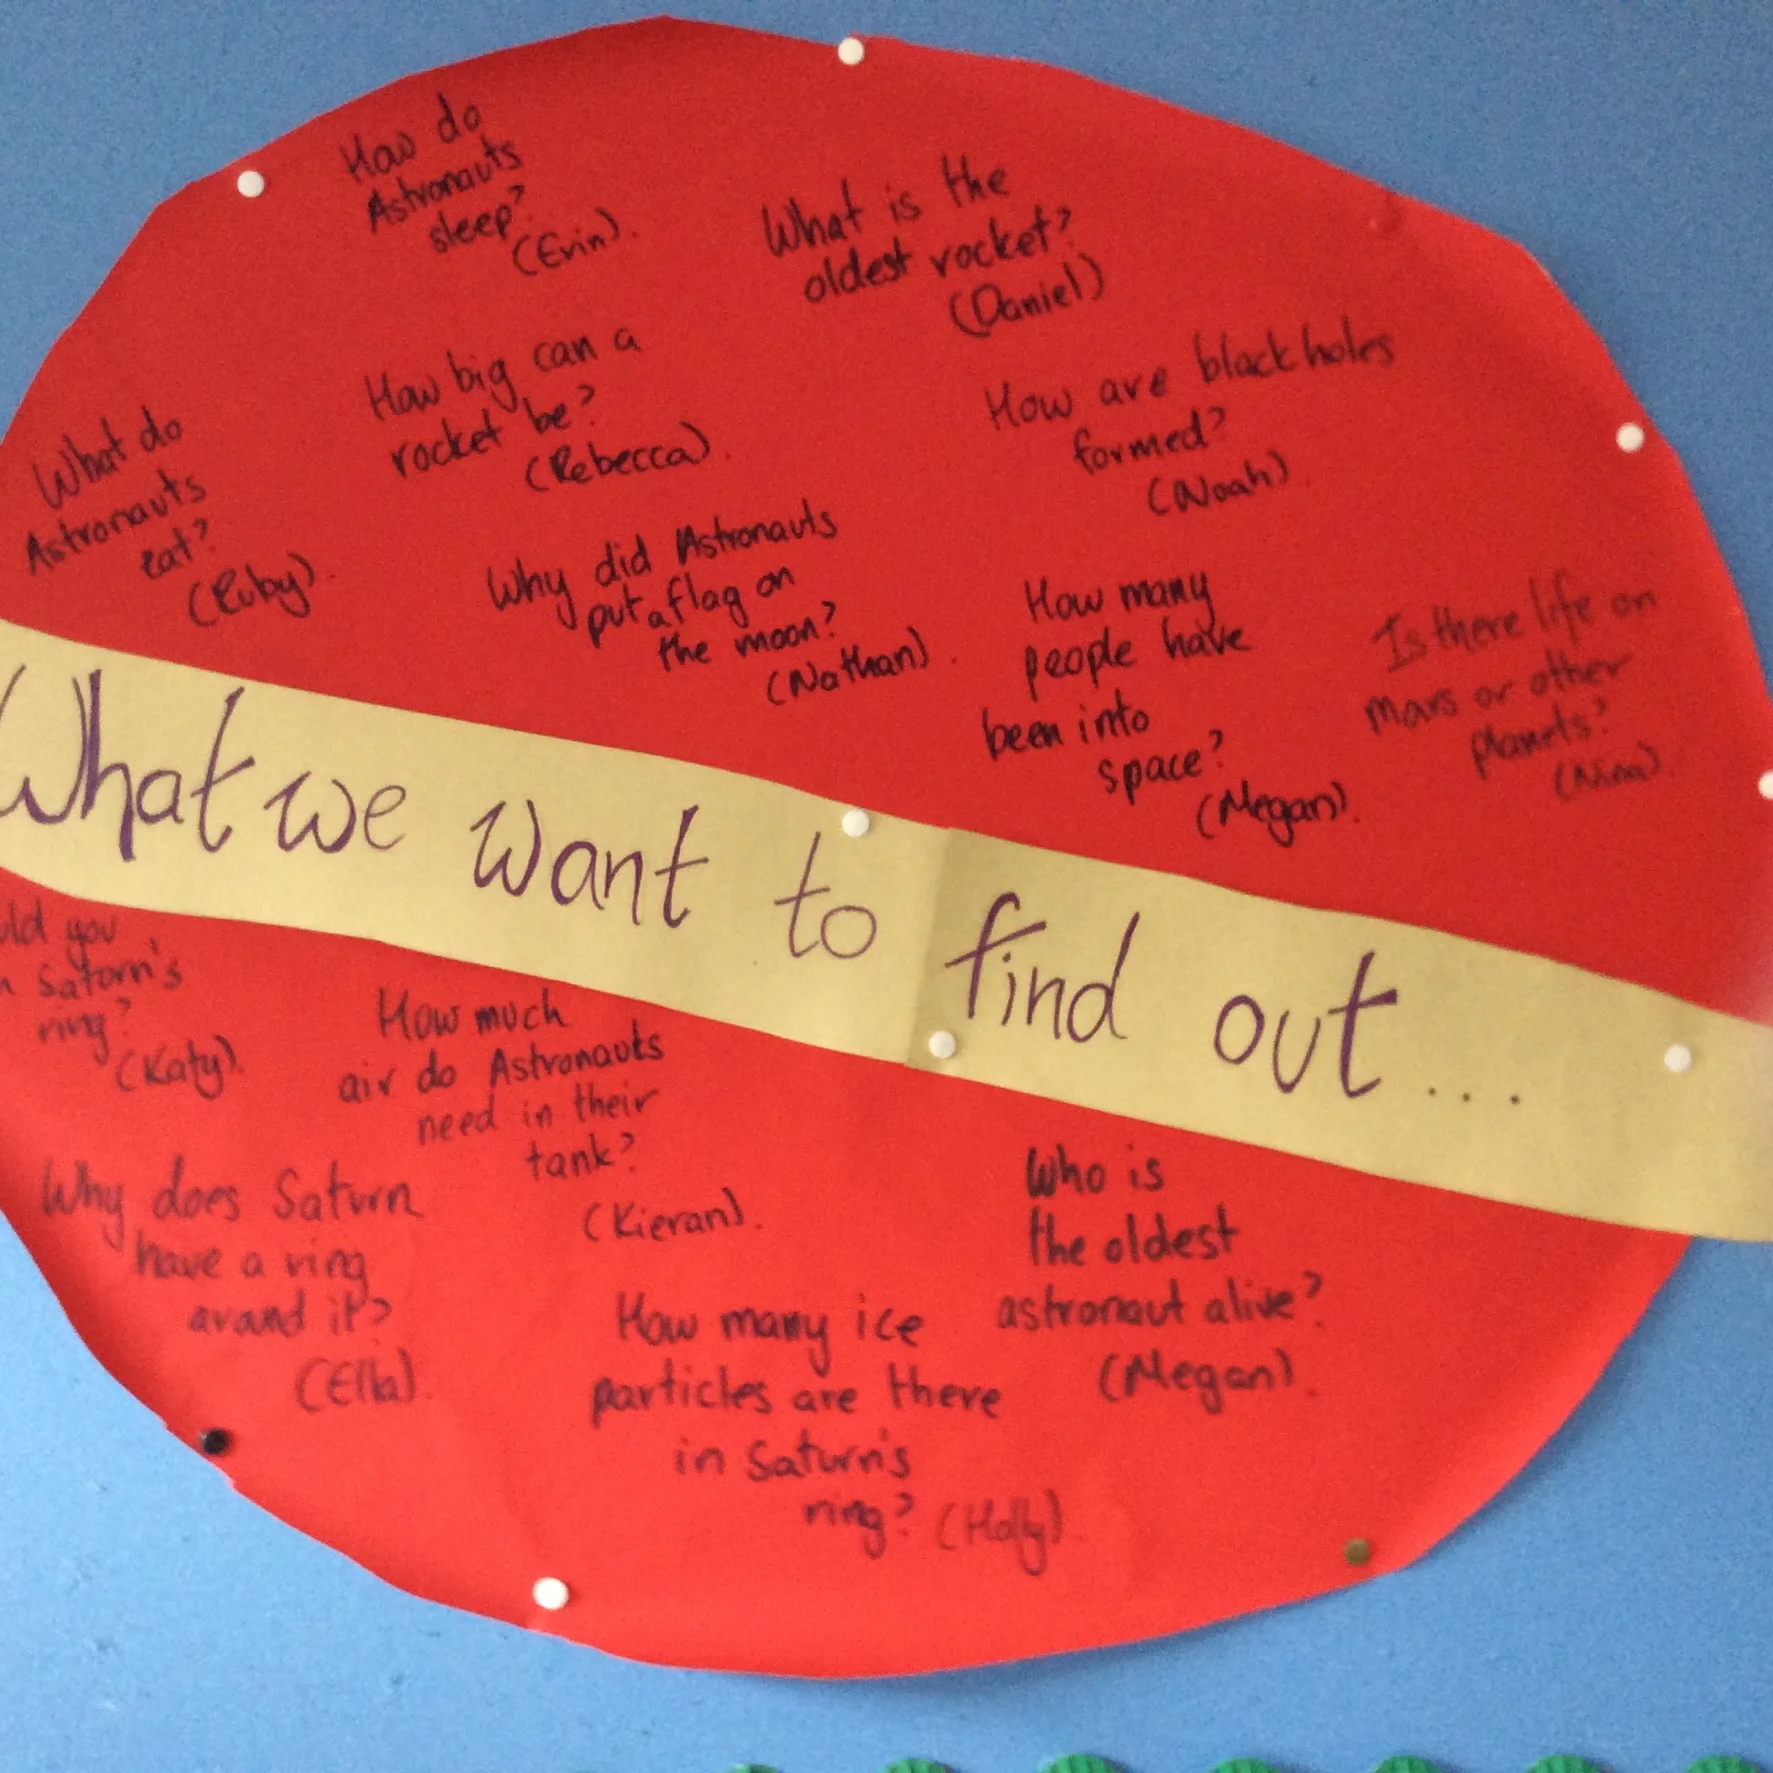 How do
Astronauts
sleep?
(Erin).
What is the
oldest rocket?
(Daniel)
How big can a
rocket be?
(Rebecca).
How are black holes
formed?
(Noah).
What do
Astronauts
eat?
(Ruby).
Why did Astronauts
put a flag on
the moon?
(Nathan).
How many
people have
been into
space?
(Megan).
Is there life on
Mars or other
planets?
What we want to find out...
you
Saturn's
ring?
(Katy).
How much
air do Astronauts
need in their
tank?
(Kieran).
Why does Saturn
have a ring
around it?
(Ella).
Who is
the oldest
astronaut alive?
(Megan).
How many ice
particles are there
in Saturn's
ring? (Holly).